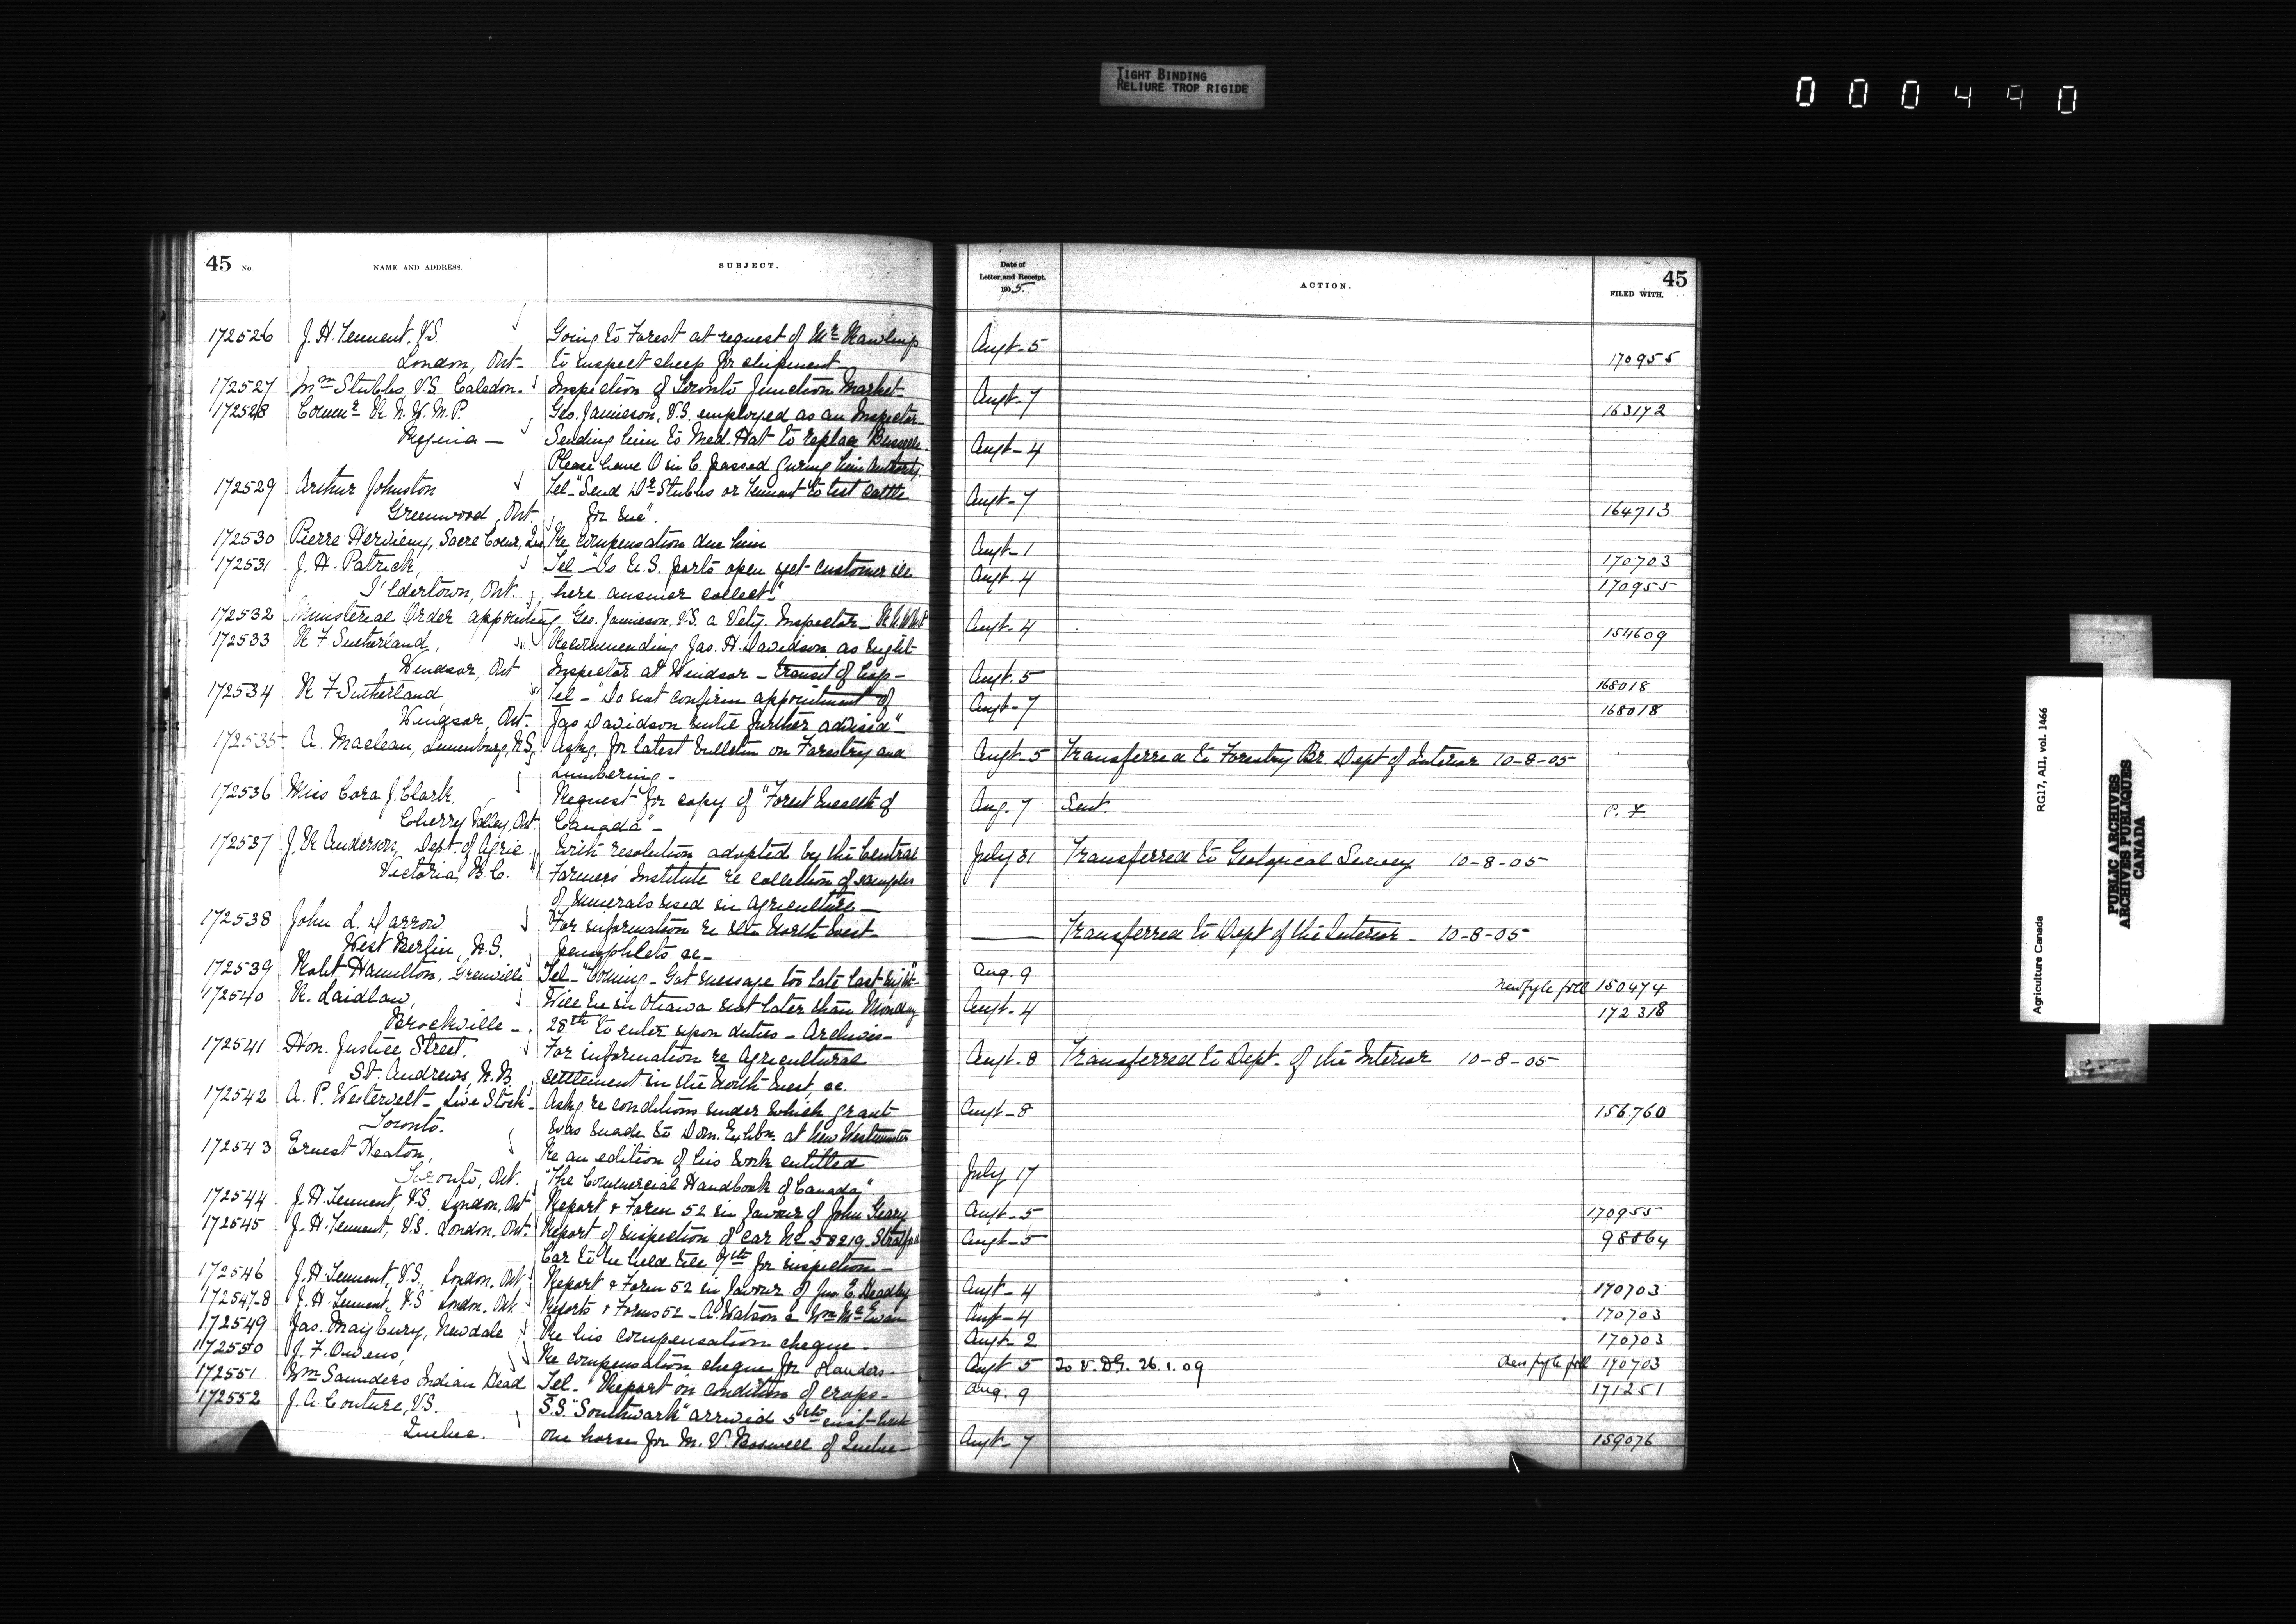 TIGHT BINDING
RELIURE TROP RIGIDE
000490
45 No.
NAME AND ADDRESS.
SUBJECT.
Date of
Letter and Receipt.
1905.
ACTION.
45
FILED WITH.
172526 J. H. Tennent, V.S. Going to Forest at request of Mr Rawlings Augt-5
London, Ont- to inspect sheep for shipment- 170955
172527 Wm Stubbs V.S. Caledon. Inspection of Toronto Junction Market- Augt-7 163172
172528 Commr R. N. W. M. P. Geo. Jamieson, V.S. employed as an Inspector-
Regina - Sending him to Med. Hat to replace Augt-4
Please have O in C. passed giving him authority.
172529 Arthur Johnston Tel-"Send Dr Stubbs or Tennent to test cattle Augt-7
Greenwood, Ont. for me". 164713
172530 Pierre Hervieux, Sacre Coeur, Que Re compensation due him Augt-1 170703
172531 J. H. Patrick, Tel-"Is U.S. ports open yet customer is Augt-4
Ildertown, Ont. here answer collect." 170955
172532 Ministerial Order appointing Geo. Jamieson, V.S. a Vety. Inspector- R.N.W.M.P. Augt-4 154609
172533 R F Sutherland, Recommending Jas. H. Davidson as night-
Windsor, Ont Inspector at Windsor - transit of Augt.5 168018
172534 R F Sutherland, Tel-"Do not confirm appointment of Augt-7
Windsor, Ont. Jas Davidson until further advised"- 168018
172535 A. Maclean, Lunenburg, N.S. Askg. for latest bulletin on Forestry and Augt-5 Transferred to Forestry Br. Dept of Interior 10-8-05
Lumbering-
172536 Miss Cora J. Clark. Request for copy of "Forest Wealth of Aug.7 Sent.
Cherry Valley, Ont. Canada"- P. F.
172537 J. R Anderson, Dept. of Agric. With resolution adopted by the Central July 31 Transferred to Geological Survey 10-8-05
Victoria, B.C. Farmers' Institute re collection of samples
of minerals used in Agriculture-
172538 John L. Darrow For information re the North West- Transferred to Dept of the Interior- 10-8-05
West Berlin, N.S. pamphlets &c-
172539 Robt Hamilton, Grenville Tel-"Coming-Got message too late last night" Aug.9 150474
172540 R. Laidlaw, Will be in Ottawa not later than Monday Augt-4 172318
Brockville-. 28th to enter upon duties-Archives-
172541 Hon. Justice Street. For information re Agricultural Augt.8 Transferred to Dept. of the Interior 10-8-05
St. Andrews, N.B. settlement in the North West, &c.
172542 A. P. Westervelt-Live Stock- Askg re conditions under which grant Augt-8 156760
Toronto. was made to Dom. Exhbn. at New Westminster
172543 Ernest Heaton, Re an edition of his work entitled
Toronto, Ont. "The Commercial Handbook of Canada" July 17
172544 J. H. Tennent, V.S. London, Ont Report & Form 52 in favour of John Geary Augt-5 170955
172545 J. H. Tennent, V.S. London, Ont. Report of inspection of car No 58219 Stratford Augt-5
Car to be held till 7th for inspection-
172546 J. H. Tennent, V.S. London, Ont Report & Form 52 in favour of Jno. E. Augt-4 170703
172547-8 J. H. Tennent, V.S London, Ont. Reports & Forms 52-A. Watson & Wm McEwan Augt-4 170703
172549 Jas. Maybury, Newdale Re his compensation cheque- Augt-2 170703
172550 J. F. Owens, Re compensation cheque for Augt 5 To V.D.G. 26.1.09 170703
172551 Wm Saunders Indian Head Tel- Report on condition of crops- Aug.9 171251
172552 J. A. Couture, V.S. S.S. "Southwark" arrived 5th inst-with
Quebec. one horse for M. V. Boswell of Quebec- Augt-7 159076
Agriculture Canada RG17, AII, vol. 1466
PUBLIC ARCHIVES
ARCHIVES PUBLIQUES
CANADA